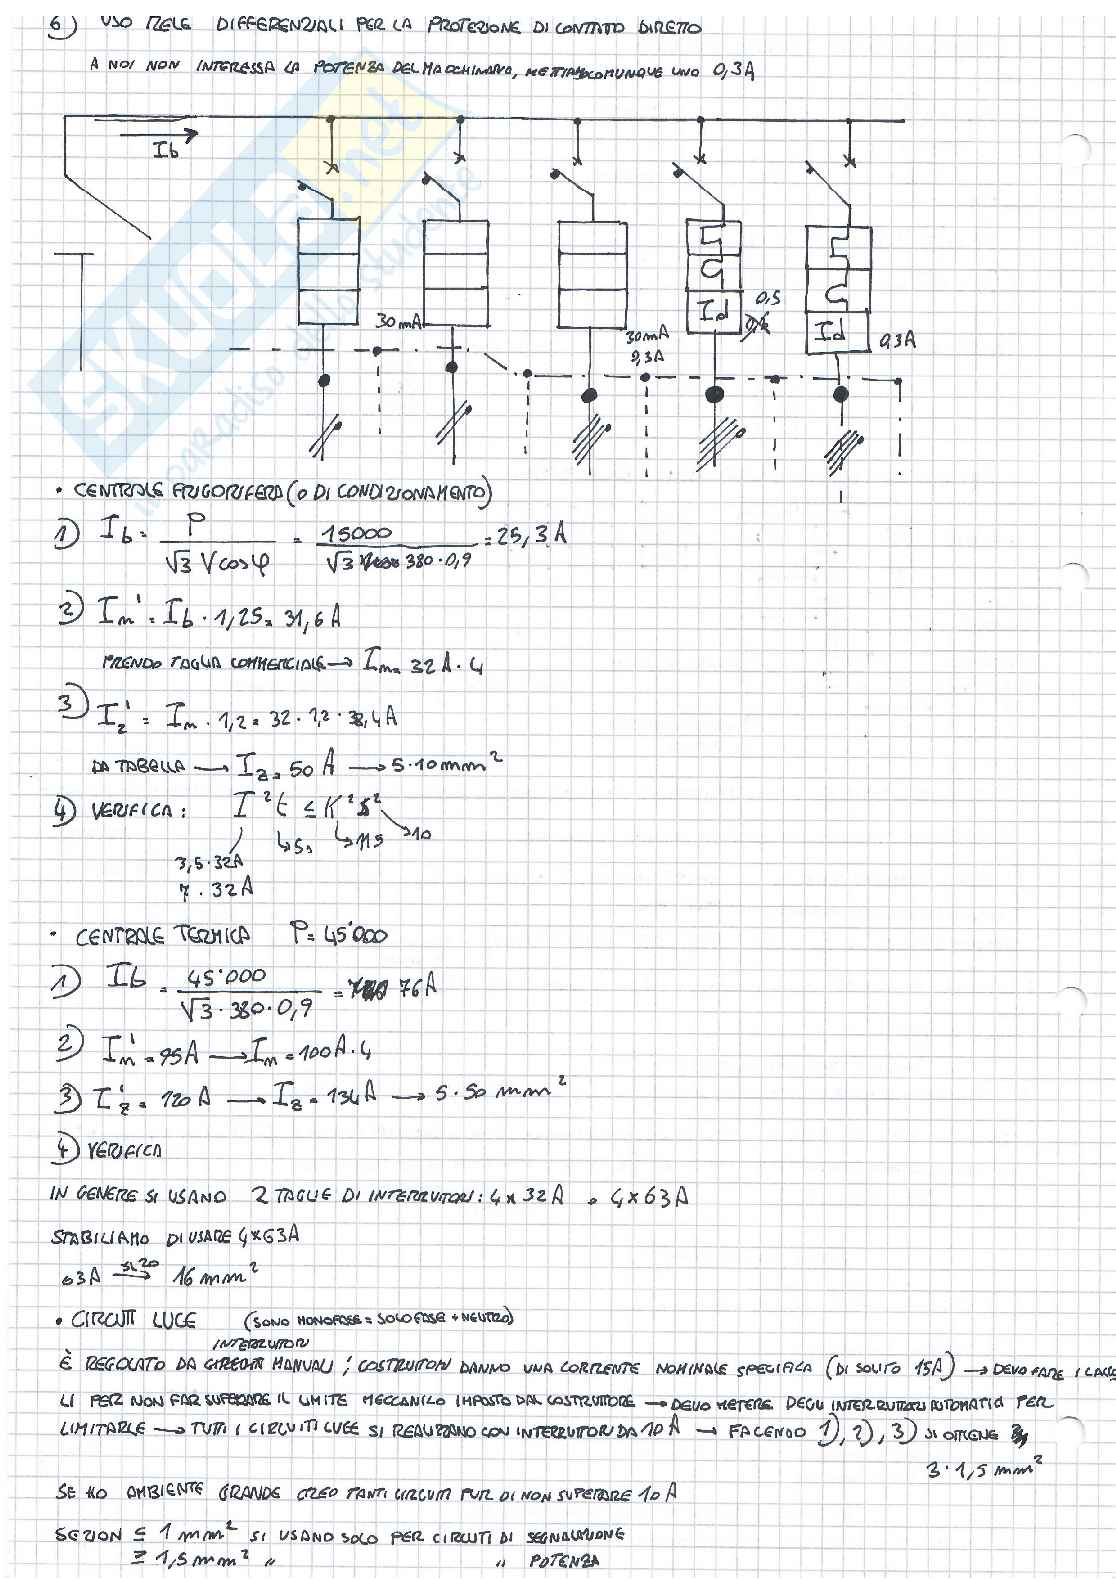 6) USO RELÈ DIFFERENZIALI PER LA PROTEZIONE DI CONTATTO DIRETTO
A NOI NON INTERESSA LA POTENZA DEL MACCHINARIO, METTIAMO COMUNQUE UNO 0,3A
Ib
30mA
30mA
0,3A
Id
0,5
Id
0,3A
SKUOLA.net
• CENTRALE FRIGORIFERA (O DI CONDIZIONAMENTO)
1) Ib = P / √3 V cosφ = 15000 / √3 380·0,9 = 25,3A
2) In' = Ib · 1,25 = 31,6A
PRENDO TAGLIA COMMERCIALE → In = 32A·4
3) Iz' = In · 1,2 = 32 · 1,2 = 38,4A
DA TABELLA → Iz = 50A → 5·10mm²
4) VERIFICA: I²t ≤ K²S²
3,5·32A
7·32A
5s
115
10
• CENTRALE TERMICA P= 45'000
1) Ib = 45'000 / √3·380·0,9 = 76A
2) In' = 95A → In = 100A·4
3) Iz' = 120A → Iz = 134A → 5·50 mm²
4) VERIFICA
IN GENERE SI USANO 2 TAGLIE DI INTERRUTTORI: 4x32A o 4x63A
STABILIAMO DI USARE 4x63A
63A → 16mm²
• CIRCUITI LUCE (SONO MONOFASE = SOLO FASE + NEUTRO)
INTERRUTTORI
È REGOLATO DA MANUALI; COSTRUTTORI DANNO UNA CORRENTE NOMINALE SPECIFICA (DI SOLITO 15A) → DEVO FARE I
LI PER NON FAR SUPERARE IL LIMITE MECCANICO IMPOSTO DAL COSTRUTTORE → DEVO METERE DEGLI INTERRUTTORI AUTOMATICI PER
LIMITARLE → TUTTI I CIRCUITI LUCE SI REALIZZANO CON INTERRUTTORI DA 10A → FACENDO 1), 2), 3) SI OTTIENE
3·1,5mm²
SE HO AMBIENTE GRANDE CREO TANTI CIRCUITI PUR DI NON SUPERARE 10A
SEZIONI ≤ 1mm² SI USANO SOLO PER CIRCUITI DI SEGNALAZIONE
≥ 1,5mm² " " POTENZA